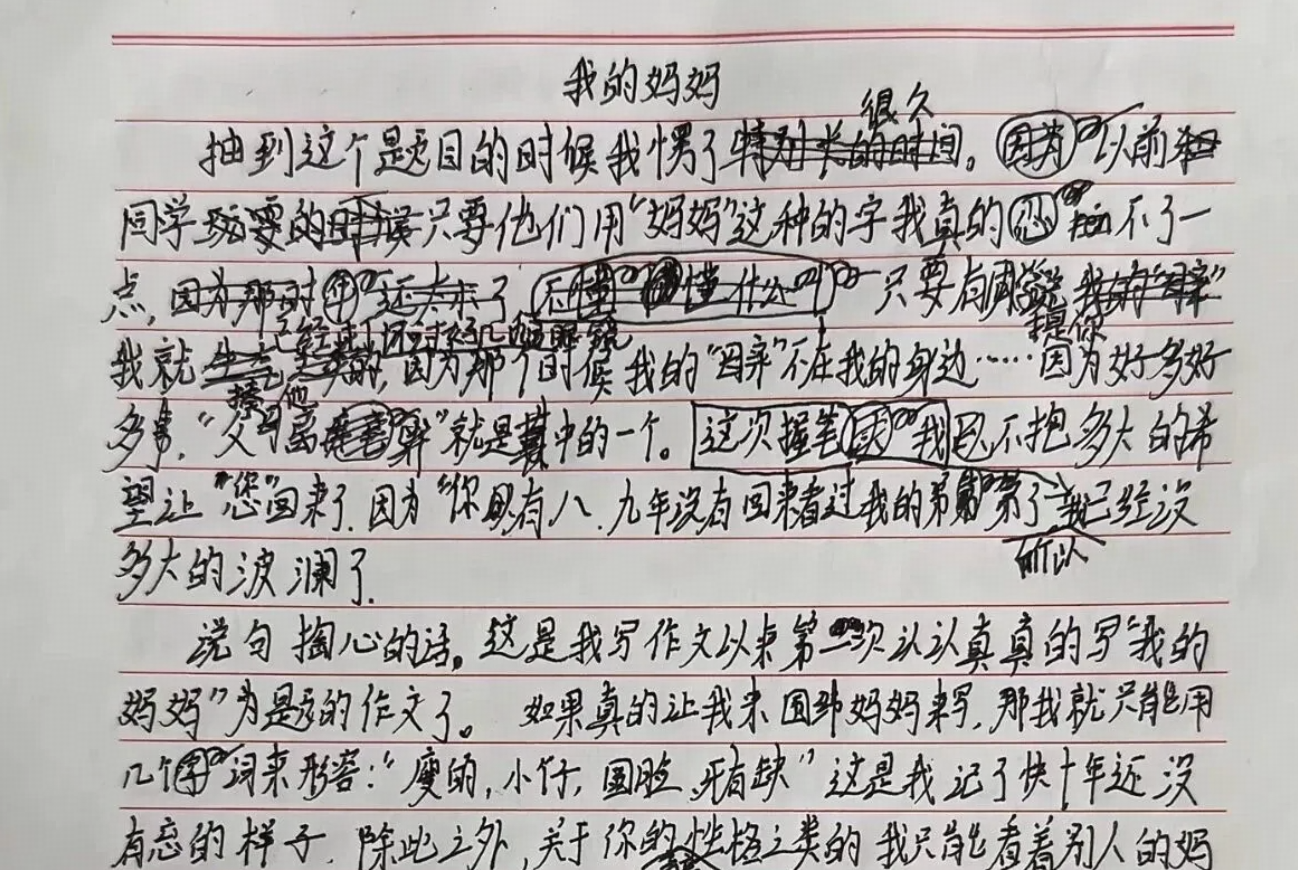 我的妈妈
很久
抽到这个是页目的时候我愣了特别长的时间。因为以前
同学 只要他们用“妈妈”这种的字我真的忍不了一
点,因为那时 还太 了 不懂 懂什么 只要有 我的
已经到 提你
我就 因为那个时候我的“ ”不在我的身边……因为好多好
他
多事.“父母离 ”就是其中的一个。这次握笔 我 不抱多大的希
望让“您”回来了.因为“你”具有八、九年没有回来看过我 了 我已经没
所以
多大的波澜了.
说句掏心的话,这是我写作文以来第 次认认真真的写“我的
妈妈”为是页的作文了。如果真的让我来围绕妈妈来写,那我就只能用
几个字词来形容:“瘦的,小仔,圆脸、牙有缺”这是我记了快十年还没
有忘的样子.除此之外,关于你的性格之类的我只能看着别人的妈